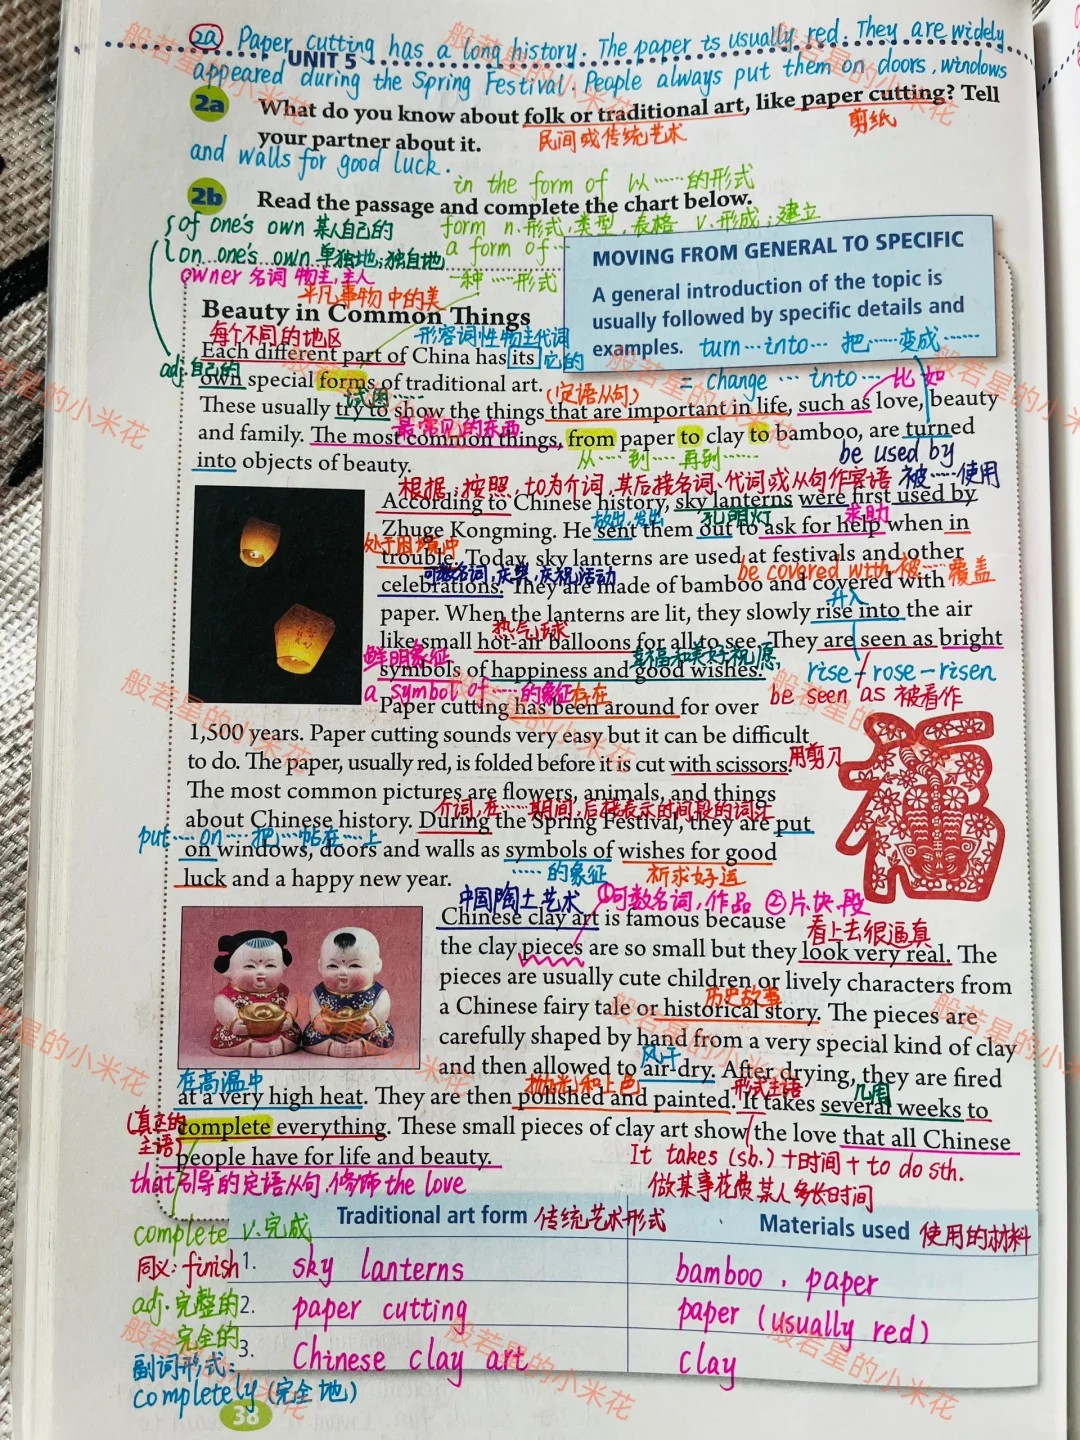 2a Paper cutting has a long history. The paper is usually red. They are widely
UNIT 5
appeared during the Spring Festival. People always put them on doors, windows
2a What do you know about folk or traditional art, like paper cutting? Tell
民间或传统艺术 剪纸
your partner about it.
and walls for good luck.
in the form of 以……的形式
2b Read the passage and complete the chart below.
of one's own 某人自己的
form n.形式,类型,表格 v.形成;建立
on one's own 单独地;独自地
a form of…
一种……形式
owner 名词 物主,主人
平凡事物中的美
MOVING FROM GENERAL TO SPECIFIC
A general introduction of the topic is
usually followed by specific details and
examples.
turn…into… 把……变成……
= change … into…
Beauty in Common Things
每个不同的地区 形容词性物主代词
Each different part of China has its 它的
adj.自己的
own special forms of traditional art.
试图…… (定语从句) 比如
These usually try to show the things that are important in life, such as love, beauty
最常见的东西
and family. The most common things, from paper to clay to bamboo, are turned
从……到……再到……
be used by
into objects of beauty.
根据;按照,to为介词,其后接名词、代词或从句作宾语 被……使用
According to Chinese history, sky lanterns were first used by
放出,发出 孔明灯 求助
Zhuge Kongming. He sent them out to ask for help when in
处于困境中
trouble. Today, sky lanterns are used at festivals and other
可数名词,庆典,庆祝活动 be covered with 被……覆盖
celebrations. They are made of bamboo and covered with
升入
paper. When the lanterns are lit, they slowly rise into the air
热气球
like small hot-air balloons for all to see. They are seen as bright
鲜明象征 幸福和美好祝愿
symbols of happiness and good wishes.
rise – rose – risen
a symbol of ……的象征 存在
be seen as 被看作
Paper cutting has been around for over
1,500 years. Paper cutting sounds very easy but it can be difficult
to do. The paper, usually red, is folded before it is cut with scissors.
用剪刀
The most common pictures are flowers, animals, and things
介词,在……期间,后接表示时间段的词汇
about Chinese history. During the Spring Festival, they are put
put…on… 把…帖在…上
on windows, doors and walls as symbols of wishes for good
……的象征 祈求好运
luck and a happy new year.
中国陶土艺术 ①可数名词,作品 ②片,块,段
Chinese clay art is famous because
看上去很逼真
the clay pieces are so small but they look very real. The
pieces are usually cute children or lively characters from
历史故事
a Chinese fairy tale or historical story. The pieces are
carefully shaped by hand from a very special kind of clay
风干
and then allowed to air-dry. After drying, they are fired
在高温中 抛光和上色 形式主语 几周
at a very high heat. They are then polished and painted. It takes several weeks to
(真正的主语)
complete everything. These small pieces of clay art show the love that all Chinese
people have for life and beauty.
It takes (sb.) + 时间 + to do sth.
that引导的定语从句,修饰the love
做某事花费某人多长时间
Traditional art form 传统艺术形式 Materials used 使用的材料
complete v.完成
同义: finish
1. sky lanterns bamboo, paper
adj.完整的
完全的
2. paper cutting paper (usually red)
3. Chinese clay art clay
副词形式:
completely (完全地)
38
般若星的小米花